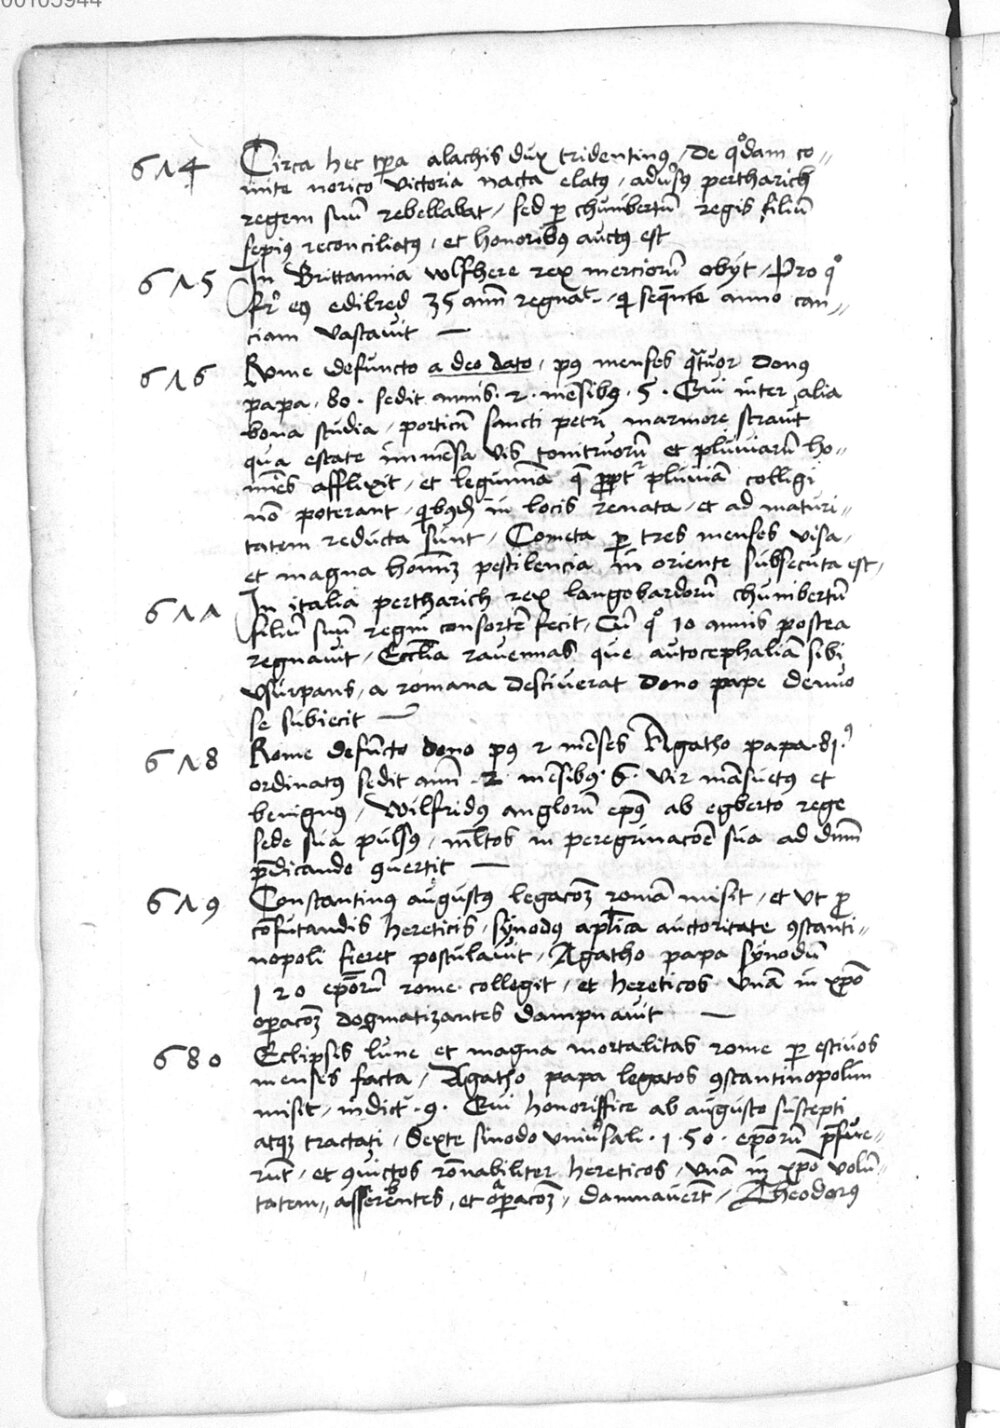 00105944
674 Circa hec tpa alachis dux tridentinus / De qdam co-
mite norico victoria nacta elatus / adversus pertharich
regem suū rebellabat / sed p chunibertū regis filiū
sepius reconciliatus / et honoribus auctus est
675 In Brittannia wlfhere rex merciorū obijt / Pro q°
fr̄ eius edilred 35 ann̄ regnat / qi sequente anno can-
ciam vastavit —
676 Rome defuncto a deo dato / pus menses quatuor Donus
papa · 80 · sedit annis · 2 · mēsibus · 5 · Qui inter alia
bona studia / porticū sancti petri marmore stravit
qua estate immēsa vis tonitruorū et pluviarū ho-
mīes afflixit / et legumīa q̄ ppt pluviā colligi
nō poterant / qibusdā in locis renata / et ad maturi-
tatem reducta sunt / Cometa p tres menses visa /
et magna hominū pestilencia in oriente subsecuta est /
677 In italia pertharich rex langobardorū chunibertū
filiū suū regni consortē fecit / Cū q° 10 annis postea
regnavit / Eccl̄ia ravennas que autocephaliā sibi
usurpans / a romana desciverat dono pape denuo
se subiecit —
678 Rome defūncto dono pus 2 mēses Agatho papa · 81 ·
ordinatus sedit ann̄ · 2 · mēsibus · 6 · vir māsuetus et
benignus / Wilfridus anglorū ep̄us ab egberto rege
sede sua pulsus / ml̄tos in peregrinacōe sua ad dnm̄
p̄dicando 9vertit —
679 Constantinus augustus legacōꝫ romā misit / et ut p
cōfutandis hereticis / synodus apl̄ica auctoritate 9stanti-
nopoli fieret postulavit / Agatho papa synodū
120 ep̄orū rome collegit / et hereticos unā in xp̄o
opacōꝫ dogmatizantes dampnavit —
680 Eclipsis lune et magna mortalitas rome p estivos
menses facta / Agatho papa legatos 9stantinopolim
misit / indict̄ · 9 · Qui honorifice ab augusto suscepti
atqꝫ tractati / Sexte sinodo univsali · 150 · ep̄orū p̄fue-
rūt / et 9victos rōnabiliter hereticos / unā in xp̄o volū-
tatem / asserentes / et opacōꝫ / damnaverūt / Theodorus